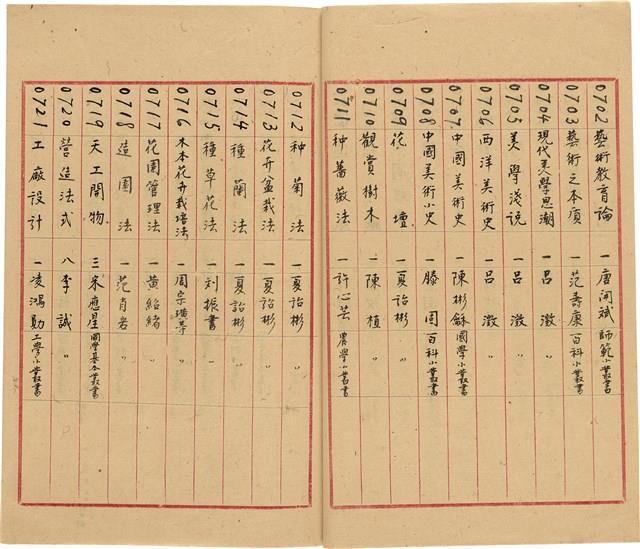 0702 藝術教育論 一 唐開斌 師範小叢書
0703 藝術之本質 一 范壽康 百科小叢書
0704 現代美學思潮 一 呂澂 〃
0705 美學淺說 一 呂澂 〃
0706 西洋美術史 一 呂澂 〃
0707 中國美術史 一 陳彬龢 國學小叢書
0708 中國美術小史 一 滕固 百科小叢書
0709 花壇 一 夏詒彬 〃
0710 觀賞樹木 一 陳植 〃
0711 种薔薇法 一 許心芸 農學小叢書
0712 种菊法 一 夏詒彬 〃
0713 花卉盆栽法 一 夏詒彬 〃
0714 種蘭法 一 夏詒彬 〃
0715 種草花法 一 刘振書 〃
0716 木本花卉栽培法 一 周宗璜等 〃
0717 花園管理法 一 黃紹緒 〃
0718 造園法 一 范肖岩 〃
0719 天工開物 三 宋應星 國學基本叢書
0720 營造法式 八 李誡 〃
0721 工廠設計 一 凌鴻勛 工學小叢書